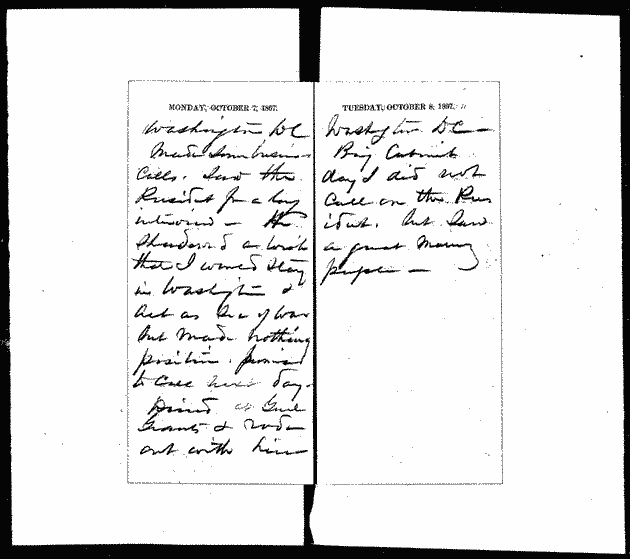 MONDAY, OCTOBER 7, 1867.
Washington DC
Made some business
Calls. Saw the
President for a long
interview — He
Shadowed a wish
that I would stay
in Washington &
Act as Sec of War
but made nothing
positive. promised
to Call next day.
Dined at Genl
Grants & rode
out with him
TUESDAY, OCTOBER 8, 1867.
Washington DC —
Being Cabinet
day I did not
Call on the Pres
ident. but Saw
a great Many
people —